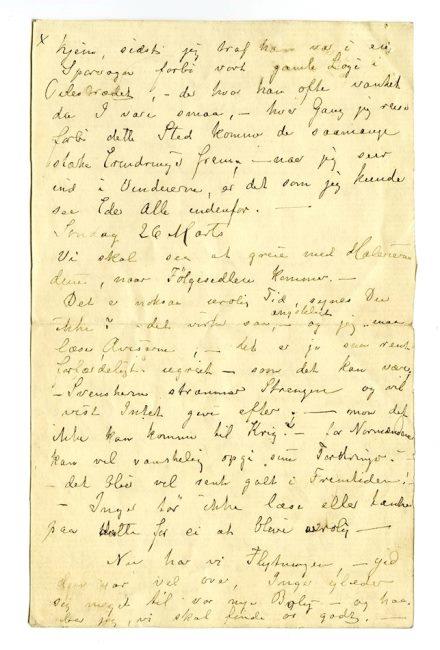 x hjem, sidst jeg traf ham var i en
Sporvogn forbi vort gamle Logi i
, - der hvor han ofte vankede
da I vare smaa, - hver Gang jeg reiser
forbi dette Sted kommer de saamange
Erindringer frem, - naar jeg seer
ind i Vinduerne, er det som jeg kunde
see Eder Alle indenfor. -
Søndag 26 Marts
Vi skal see at greie med
dem, naar Følgesedlen kommer. -
Det er noksaa urolig Tid, synes Du
ængstelig
ikke? - det virker saa, - og jeg maa
læse Aviserne, - det er jo saa rent
ugreit - som det kan være,
- Svenskerne strammer Strengen og vil
vist Intet give efter, - mon det
ikke kan komme til Krig? - for Nordmændene
kan vel vanskelig opgi sine Fordringer? -
- det blir vel rent galt i Fremtiden! -
- Inga tør ikke læse eller tænke
paa dette for ei at blive urolig -
Nu har vi Flytningen, - gid
den var vel over, Inga glæder
sig meget til vor nye Bolig - og haa-
ber jeg, vi skal finde os godt. -